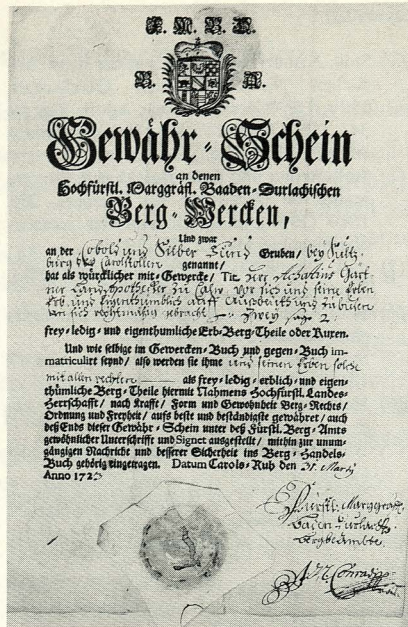 Gewähr-Schein
an denen
Hochfürstl. Marggräfl. Baaden-Durlachischen
Berg-Wercken,
Und zwar
an der Cobolt und Silber Gruben / bey Sultz-
burg genannt /
hat als würcklicher mit-Gewercke / Tit. Herr Gart-
ner zu Lahr vor sich und seine Erben
Erb und Eigenthumblich auff
2
frey-ledig-und eigenthumliche Erb-Berg-Theile oder Kuxen.
Und wie selbige im Gewercken-Buch und gegen-Buch im-
matriculirt seynd / also werden sie ihme und seinen Erben
mit allen Rechten als frey-ledig-erblich-und eigen-
thümliche Berg-Theile hiermit Nahmens Hochfürstl. Landes-
Herrschafft / nach Krafft / Form und Gewohnheit Berg-Rechts /
Ordnung und Freyheit / aufs beste und beständigste gewähret / auch
deß Ends dieser Gewähr-Schein unter deß Fürstl. Berg-Amts
gewöhnlicher Unterschrifft und Signet ausgestellt / mithin zur unum-
gängigen Nachricht und besserer Sicherheit ins Berg-Handels-
Buch gehörig eingetragen. Datum Carols-Ruh den 31. Martÿ
Anno 172
Fürstl. Marggräfl.
Baden Durlach.
Bergbeambte.
Conradi